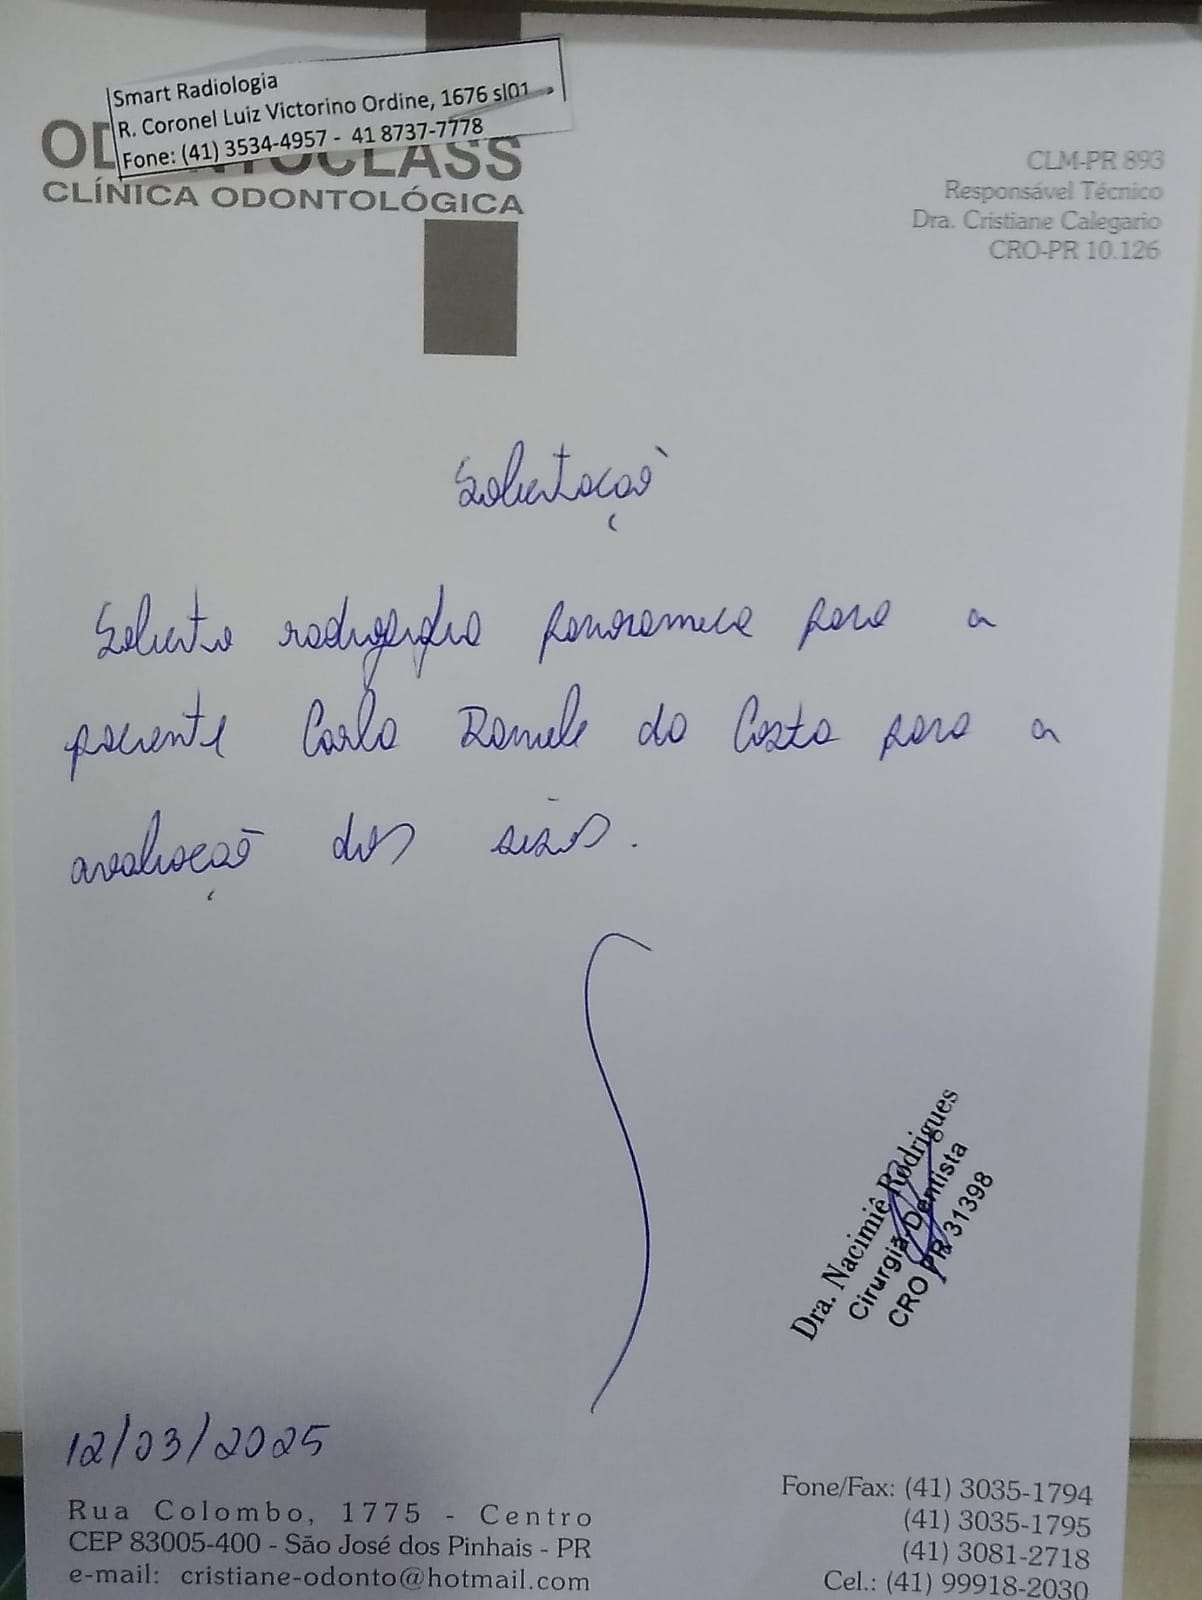 Smart Radiologia
R. Coronel Luiz Victorino Ordine, 1676 sl01
Fone: (41) 3534-4957 - 41 8737-7778
CLÍNICA ODONTOLÓGICA
CLM-PR 893
Responsável Técnico
Dra. Cristiane Calegario
CRO-PR 10.126
Solicitação
Solicito radiografia panoramica para a
paciente Carla Daniele da Costa para a
avaliação dos sisos.
Dra. Nacimiê Rodrigues
Cirurgiã-Dentista
CRO PR 31398
12/03/2025
Rua Colombo, 1775 - Centro
CEP 83005-400 - São José dos Pinhais - PR
e-mail: cristiane-odonto@hotmail.com
Fone/Fax: (41) 3035-1794
(41) 3035-1795
(41) 3081-2718
Cel.: (41) 99918-2030